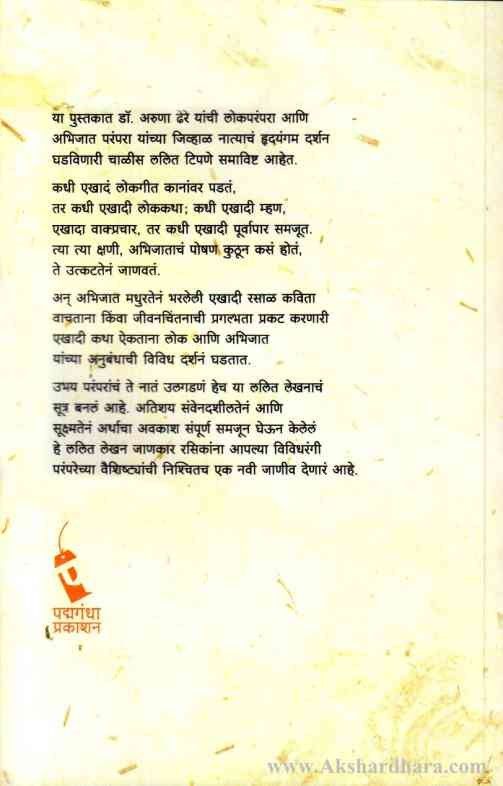 या पुस्तकात डॉ. अरुणा ढेरे यांची लोकपरंपरा आणि
अभिजात परंपरा यांच्या जिव्हाळ नात्याचं हृदयंगम दर्शन
घडविणारी चाळीस ललित टिपणे समाविष्ट आहेत.
कधी एखादं लोकगीत कानांवर पडतं,
तर कधी एखादी लोककथा; कधी एखादी म्हण,
एखादा वाक्प्रचार, तर कधी एखादी पूर्वापार समजूत.
त्या त्या क्षणी, अभिजाताचं पोषण कुठून कसं होतं,
ते उत्कटतेनं जाणवतं.
अन् अभिजात मधुरतेनं भरलेली एखादी रसाळ कविता
वाचताना किंवा जीवनचिंतनाची प्रगल्भता प्रकट करणारी
एखादी कथा ऐकताना लोक आणि अभिजात
यांच्या अनुबंधाची विविध दर्शनं घडतात.
उभय परंपरांचं ते नातं उलगडणं हेच या ललित लेखनाचं
सूत्र बनलं आहे. अतिशय संवेनदशीलतेनं आणि
सूक्ष्मतेनं अर्थाचा अवकाश संपूर्ण समजून घेऊन केलेलं
हे ललित लेखन जाणकार रसिकांना आपल्या विविधरंगी
परंपरेच्या वैशिष्ट्यांची निश्चितच एक नवी जाणीव देणारं आहे.
पद्मगंधा
प्रकाशन
www.Akshardhara.com